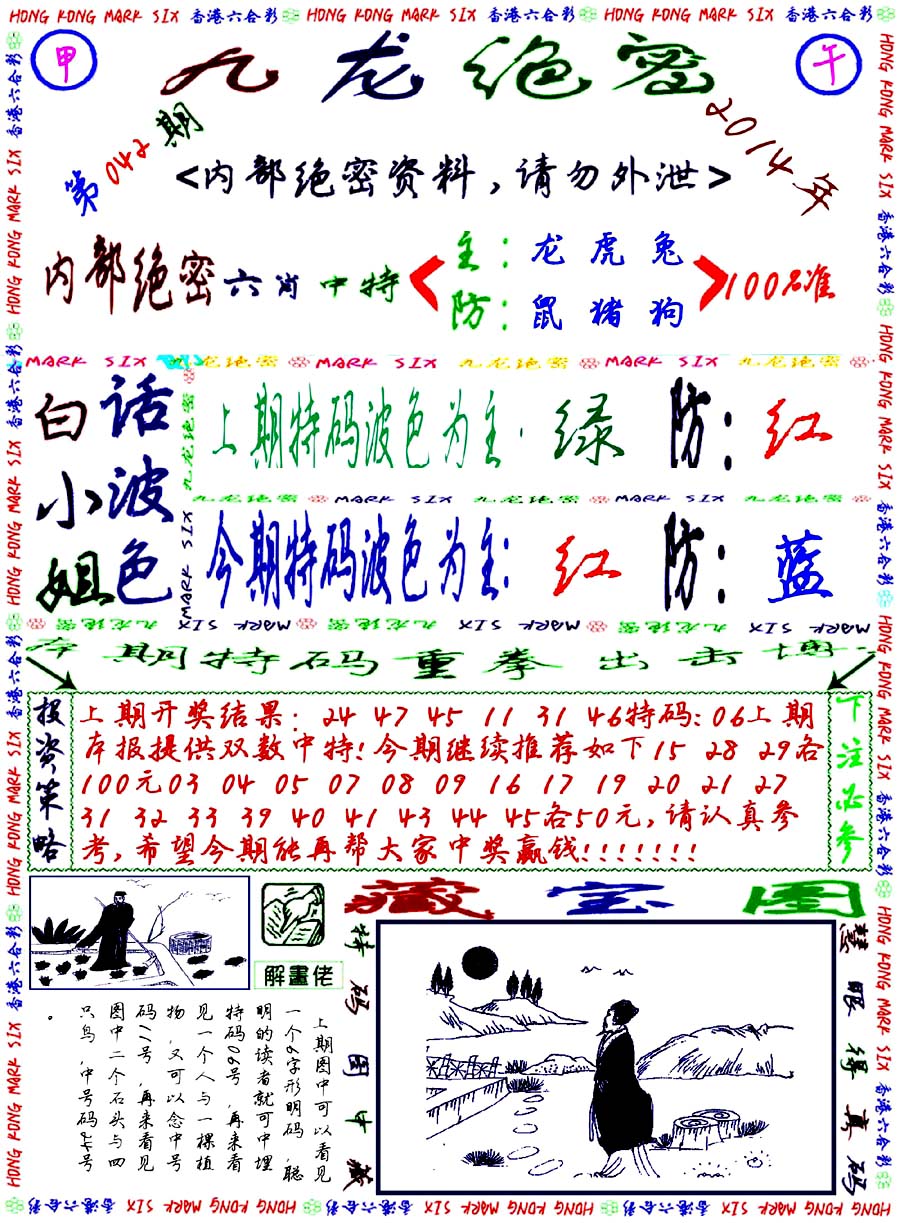 HONG KONG MARK SIX 香港六合彩 HONG KONG MARK SIX 香港六合彩 HONG KONG MARK SIX 香港六合彩
甲
九龙绝密
午
第042期
2014年
<内部绝密资料,请勿外泄>
内部绝密六肖中特
主:龙虎兔
防:鼠猪狗
100%准
MARK SIX 九龙绝密 MARK SIX 九龙绝密 MARK SIX 九龙绝密
白话小波姐色
上期特码波色为主:绿 防:红
九龙绝密 MARK SIX 九龙绝密 MARK SIX 九龙绝密
今期特码波色为主:红 防:蓝
MARK SIX 九龙绝密 MARK SIX 九龙绝密 MARK SIX 九龙绝密
本期特码重拳出击博
投资策略
上期开奖结果:24 47 45 11 31 46特码:06上期
本报提供双数中特!今期继续推荐如下15 28 29各
100元03 04 05 07 08 09 16 17 19 20 21 27
31 32 33 39 40 41 43 44 45各50元,请认真参
考,希望今期能再帮大家中奖赢钱!!!!!!!
下注必参
藏宝图
解畫佬
特码图中藏
慧眼得真码
上期图中可以看见
一个6字形明码,聪
明的读者就可中埋
特码06号,再来看
见一个人与一棵植
物,又可以念中号
码11号,再来看见
图中二个石头与四
只鸟,中号码24号
。
HONG KONG MARK SIX 香港六合彩 HONG KONG MARK SIX 香港六合彩 HONG KONG MARK SIX 香港六合彩